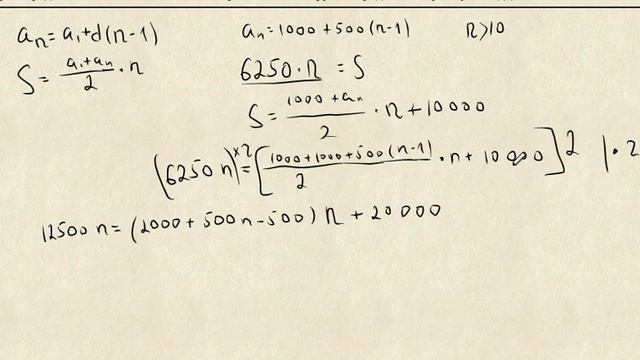 aₙ = a₁ + d(n-1)    aₙ = 1000 + 500(n-1)    n > 10
S = (a₁ + aₙ)/2 · n    6250 · n = S
S = (1000 + aₙ)/2 · n + 10000
(6250 n)^{×2} = [(1000 + 1000 + 500(n-1))/2 · n + 10000] 2 | · 2
12500 n = (2000 + 500n - 500) n + 20000